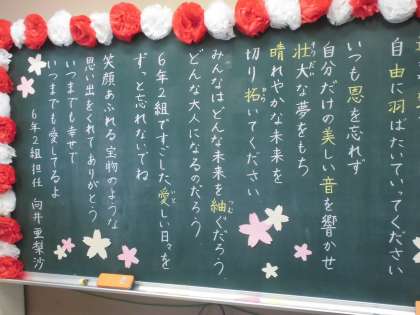 自由に羽ばたいていってください
いつも恩を忘れず
自分だけの美しい音を響かせ
壮大な夢をもち
晴れやかな未来を
切り拓いてください
みんなはどんな未来を紬ぐだろう
どんな大人になるのだろう
6年2組ですごした愛しい日々を
ずっと忘れないでね
笑顔あふれる宝物のような
思い出をくれてありがとう
いつまでも幸せで
いつまでも愛してるよ
6年2組担任 向井亜梨沙